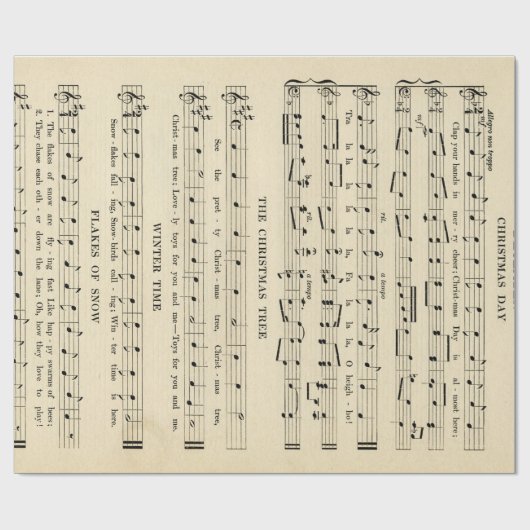 CHRISTMAS DAY
Allegro non troppo
mf
mf
Clap your hands in mer - ry cheer; Christ-mas Day is al - most here;
rit.
a tempo
Tra la la la la la, Fa la la la, O heigh - ho!
rit.
a tempo
rit.
a tempo
THE CHRISTMAS TREE
See the pret - ty Christ - mas tree, Christ - mas tree,
Christ - mas tree; Love - ly toys for you and me—Toys for you and me.
WINTER TIME
Snow-flakes fall - ing, Snow-birds call - ing; Win - ter time is here.
FLAKES OF SNOW
1. The flakes of snow are fly - ing fast Like hap - py swarms of bees;
2. They chase each oth - er down the lane; Oh, how they love to play!